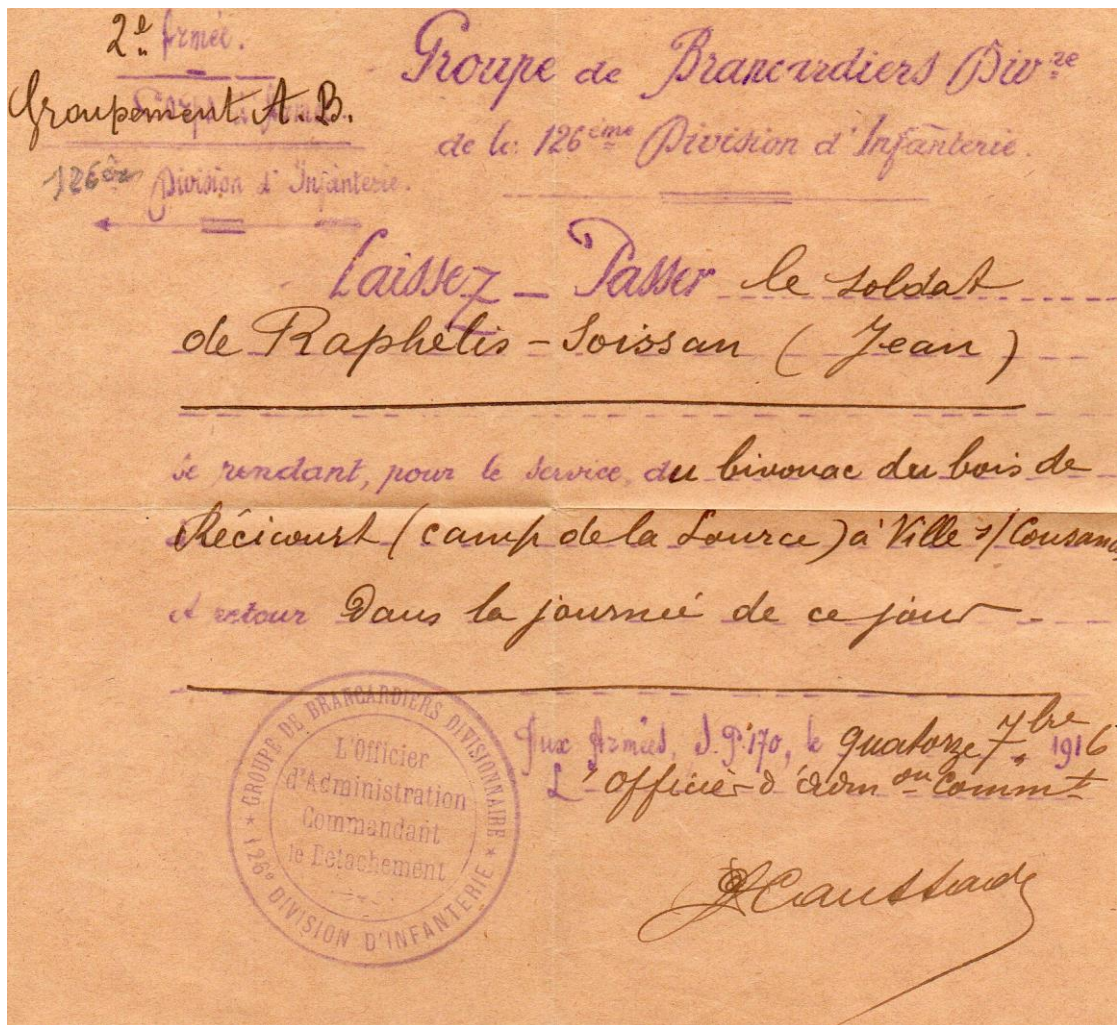 2e Armée.
Groupement A.B.
Corps d'Armée
126ème Division d'Infanterie.
Groupe de Brancardiers Div.re
de la 126ème Division d'Infanterie.
Laissez-Passer le soldat
de Raphélis-Soissan (Jean)
se rendant, pour le service, du bivouac du bois de
Récicourt (camp de la Source) à Ville s/ Cousances
et retour Dans la journée de ce jour.
Aux Armées, S.P. 170, le quatorze 7bre 1916
L'officier d'adm on Commt
GROUPE DE BRANCARDIERS DIVISIONNAIRE
* 126e DIVISION D'INFANTERIE *
L'Officier
d'Administration
Commandant
le Détachement